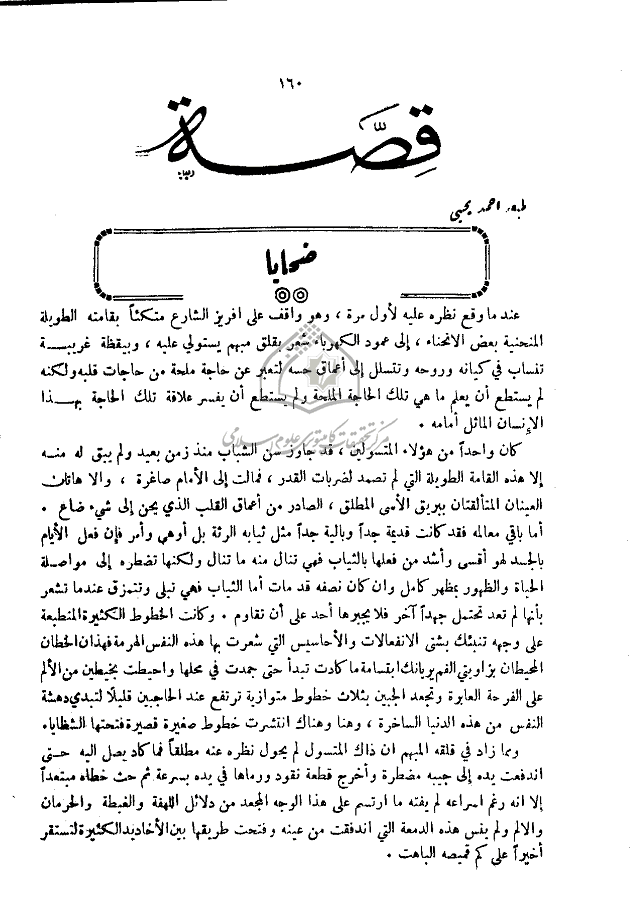 ١٦٠
قصّة
احمد يحيى
ضحايا
عند ما وقع نظره عليه لأول مرة ، وهو واقف على افريز الشارع متكئاً بقامته الطويلة
المنحنية بعض الانحناء ، إلى عمود الكهرباء شعر بقلق مبهم يستولي عليه ، وبيقظة غريبــة
تنساب في كيانه وروحه وتتسلل إلى أعماق حسه لتعبر عن حاجة ملحة من حاجات قلبه ولكنه
لم يستطع أن يعلم ما هي تلك الحاجة الملحة ولم يستطع أن يفسر علاقة تلك الحاجة بهــذا
الإنسان الماثل أمامه .
كان واحداً من هؤلاء المتسولين ، قد جاوز سن الشباب منذ زمن بعيد ولم يبق له منــه
إلا هذه القامة الطويلة التي لم تصمد لضربات القدر ، فمالت إلى الأمام صاغرة ، والا هاتان
العينان المتألقتان ببريق الأسى المطلق ، الصادر من أعماق القلب الذي يحن إلى شيء ضاع .
أما باقي معالمه فقد كانت قديمة جداً وبالية جداً مثل ثيابه الرثة بل أوهى وأمر فإن فعل الأيام
بالجسد لهو أقسى وأشد من فعلها بالثياب فهي تنال منه ما تنال ولكنها تضطره إلى مواصلة
الحياة والظهور بمظهر كامل وان كان نصفه قد مات أما الثياب فهي تبلى وتتمزق عندما تشعر
بأنها لم تعد تحتمل جهداً آخر فلا يجبرها أحد على أن تقاوم . وكانت الخطوط الكثيرة المنطبعة
على وجهه تنبئك بشتى الانفعالات والأحاسيس التي شعرت بها هذه النفس الهرمة فهذان الخطان
المحيطان بزاويتي الفم يريانك ابتسامة ما كادت تبدأ حتى جمدت في محلها واحيطت بخيطين من الألم
على الفرحة العابرة وتجعد الجبين بثلاث خطوط متوازية ترتفع عند الحاجبين قليلاً لتبدي دهشة
النفس من هذه الدنيا الساخرة ، وهنا وهناك انتشرت خطوط صغيرة قصيرة فتحتها الشظايا.
ومما زاد في قلقه المبهم ان ذاك المتسول لم يحول نظره عنه مطلقاً فما كاد يصل اليه حتــى
اندفعت يده إلى جيبه مضطرة وأخرج قطعة نقود ورماها في يده بسرعة ثم حث خطاه مبتعداً
إلا انه رغم اسراعه لم يفته ما ارتسم على هذا الوجه المجعد من دلائل اللهفة والغبطة والحرمان
والالم ولم ينس هذه الدمعة التي اندفقت من عينه وفتحت طريقها بين الأخاديد الكثيرة لتستقر
أخيراً على كم قميصه الباهت .